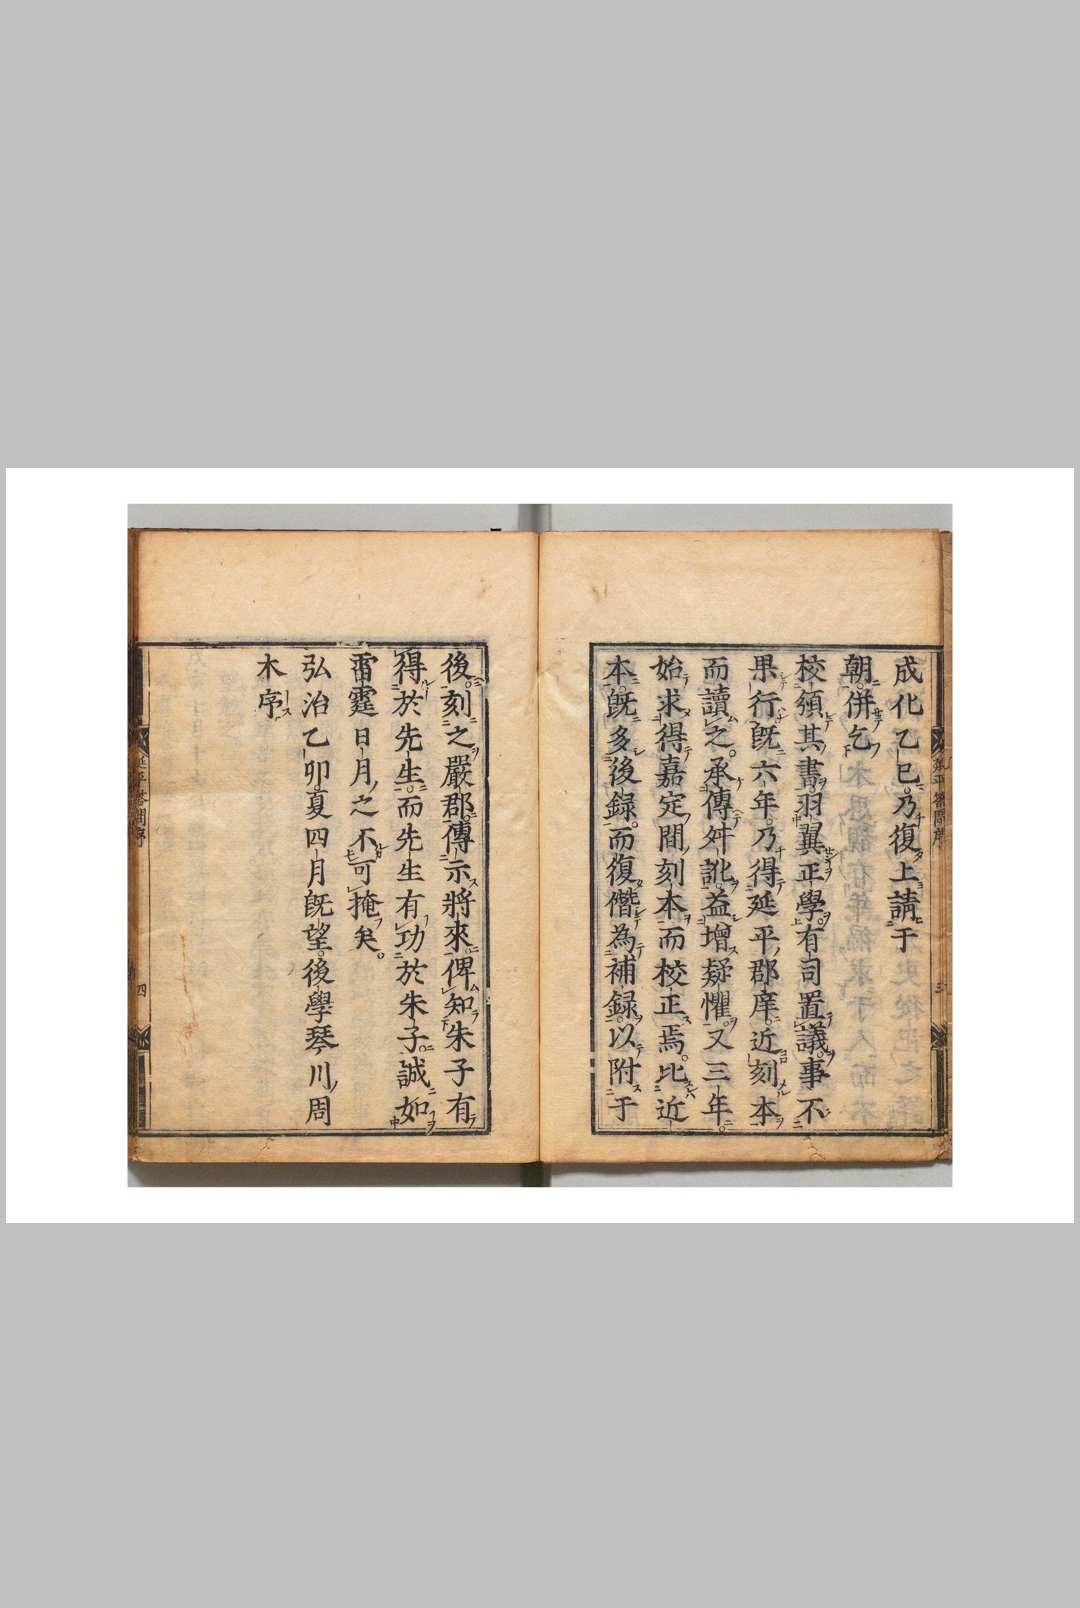 成化乙巳乃復上請于
朝併乞
校頒其書羽翼正學有司置議事不
果行旣六年乃得延平郡庠近刻本
而讀之承傳舛訛益增疑懼又三年
始求得嘉定間刻本而校正焉比近
本旣多後録而復僭為補録以附于
後刻之嚴郡傳示將來俾知朱子有
得於先生而先生有功於朱子誠如
雷霆日月之不可掩矣
弘治乙卯夏四月旣望後學琴川周
木序
延平答問序
四